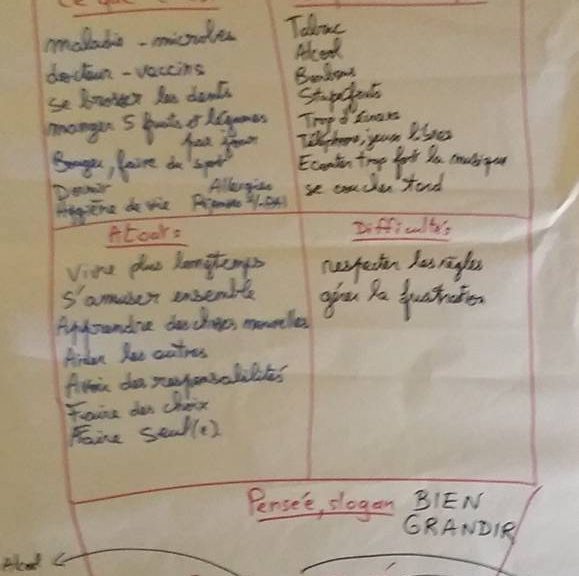 Ce que
maladie - microbes
docteur - vaccins
se brosser les dents
manger 5 fruits et légumes
par jour
Bouger, faire du sport
Dormir Allergies
Hygiène de vie
Tabac
Alcool
Bonbons
Stupéfiants
Trop d'écrans
Téléphone, jeux
Ecouter trop fort la musique
se coucher tard
Atouts
Vivre plus longtemps
S'amuser ensemble
Apprendre des choses nouvelles
Aider les autres
Avoir des responsabilités
Faire des choix
Faire seul(e)
Difficultés
respecter les règles
gérer la frustration
Pensée, slogan BIEN
GRANDIR
Alcool